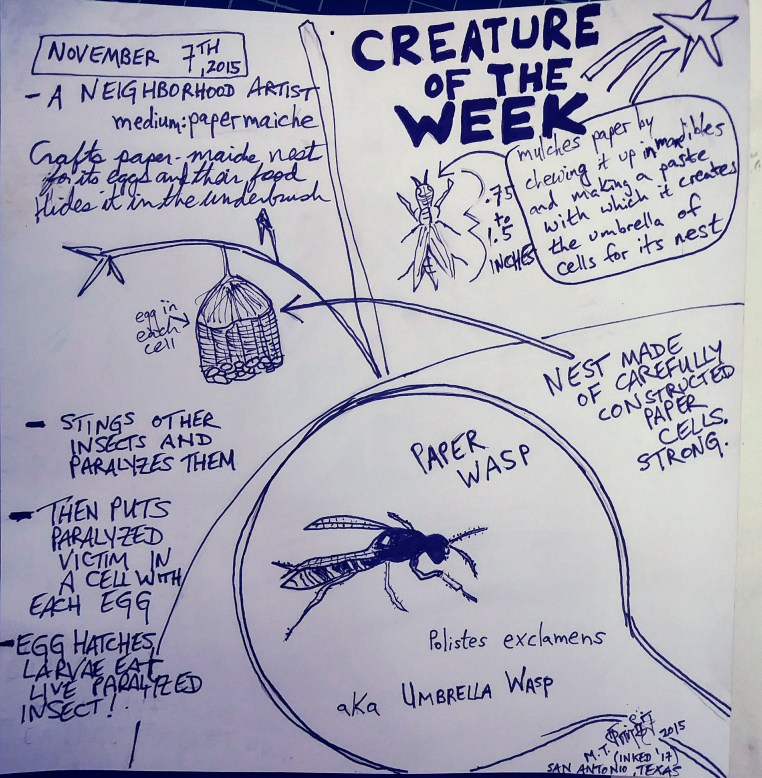 NOVEMBER 7TH, 2015
- A NEIGHBORHOOD ARTIST
medium: paper maiche
Crafts paper-maiche nest
for its eggs and their food
Hides it in the underbrush
CREATURE
OF THE
WEEK
mulches paper by
chewing it up in mandibles
and making a paste
with which it creates
the umbrella of
cells for its nest
.75
to
1.5
INCHES
egg in
each
cell
NEST MADE
OF CAREFULLY
CONSTRUCTED
PAPER
CELLS.
STRONG.
- STINGS OTHER
INSECTS AND
PARALYZES THEM
- THEN PUTS
PARALYZED
VICTIM IN
A CELL WITH
EACH EGG
- EGG HATCHES,
LARVAE EAT
LIVE PARALYZED
INSECT!
PAPER
WASP
Polistes exclamens
aka UMBRELLA WASP
M.T. 2015
(INKED '17)
SAN ANTONIO, TEXAS